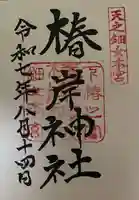 天之細女本宮
椿岸神社
令和七年八月十四日